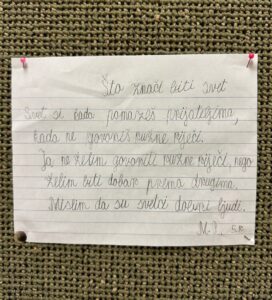 Što znači biti svet
Svet si kada pomažeš prijateljima,
kada ne govoriš ružne riječi.
Ja ne želim govoriti ružne riječi, nego
želim biti dobar prema drugima.
Mislim da su sveci dobri ljudi.
M.P., 5.r.